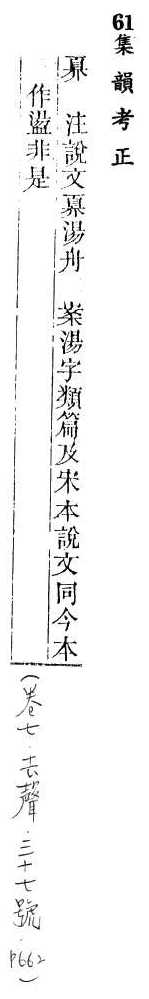 61集韻考正
奡 注說文奡湯舟 案湯字類篇及宋本說文同今本
作盪非是
(卷七.去聲.三十七號.p662)